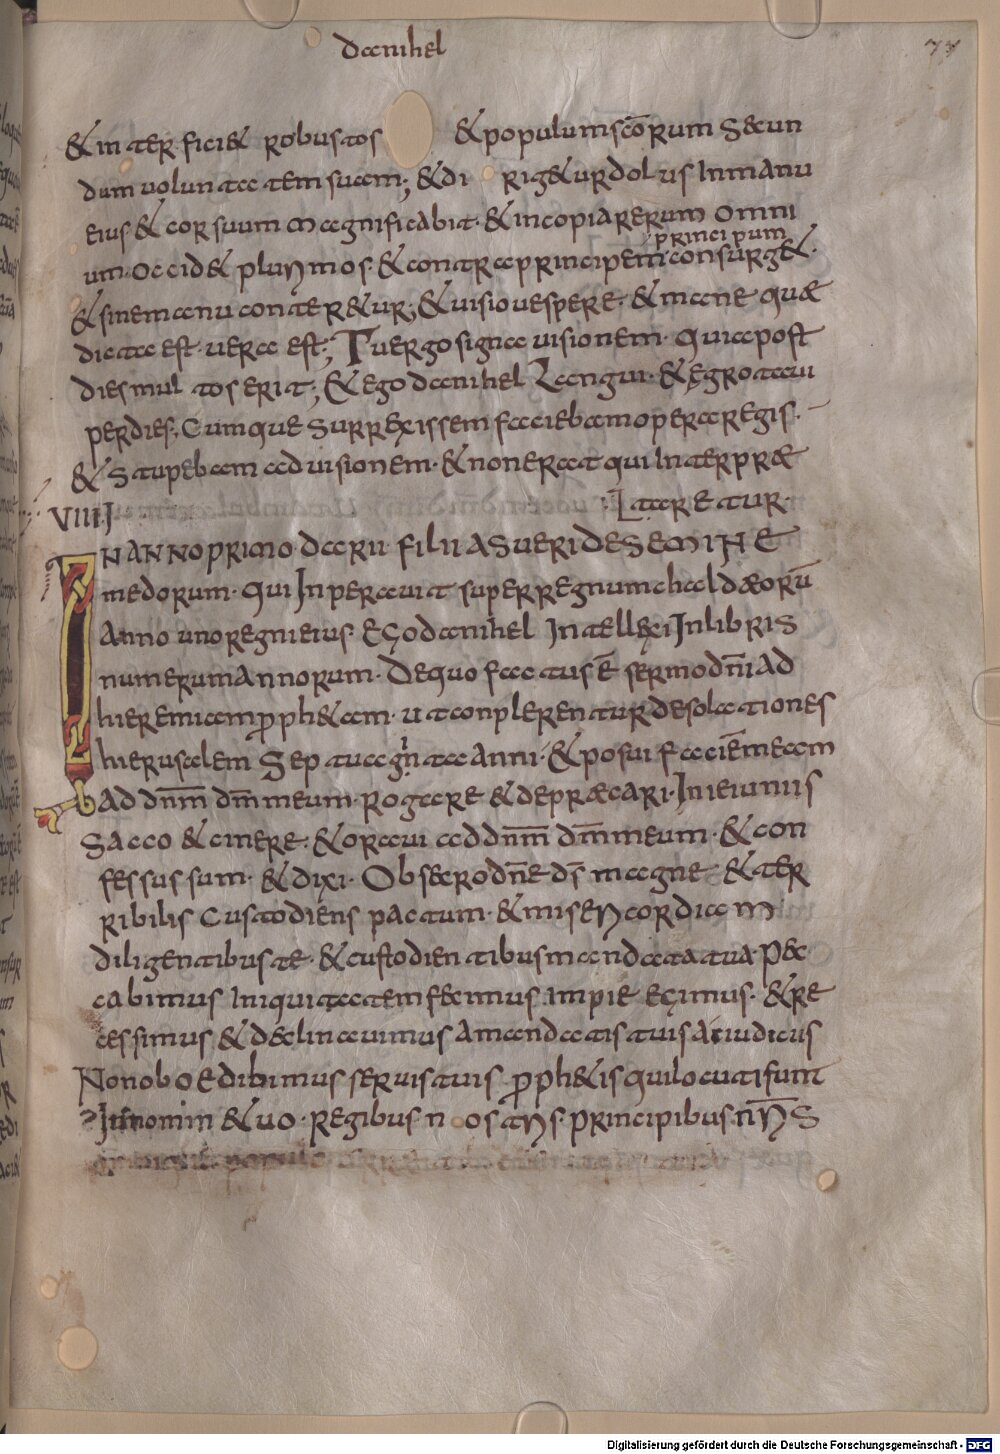 danihel
77
& interfici& robustos & populum scōrum secun
dum voluntatem suam; & dirig&ur dolus In manu
eius & cor suum magnificabit· & in copia rerum omni
principum
um· occid& plurimos· & contra principem consurg&·
& sine manu conter&ur; & visio vespere· & mane quæ
dicta est· vera est; Tu ergo signa visionem· quia post
dies multos erit; & ego danihel Langui· & ęgrotavi
per dies; Cumque surrexissem faciebam opera regis·
& stupebam ad visionem· & non erat qui Interpræ
VIIII
taretur·
IN ANNO primo darii filii asueri de semine
medorum· qui Inperavit super regnum chaldæorū
Anno uno regni eius· Ego danihel Intellexi In libris
numerum annorum· De quo factus ē sermo dn̄i ad
hieremiam proph&am· ut conplerentur desolationes
hierusalem Septuaginta anni· & posui faciē meam
ad dnm̄ dm̄ meum· rogare & depræcari· In ieiuniis
Sacco & cinere· & oravi ad dnm̄ dm̄ meum· & con
fessus sum· & dixi· Obsecro dn̄e ds̄ magne & ter
ribilis Custodiens pactum· & misericordiam
diligentibus te· & custodientibus mandata tua· pec
cabimus Iniquitatem fecimus Impie egimus· & re
cessimus & declinavimus a mandatis tuis ac iudiciis
Non oboedibimus servis tuis proph&is qui locuti sunt
In nomin & uo· regibus nostris· principibus nr̄is
Digitalisierung gefördert durch die Deutsche Forschungsgemeinschaft - DFG